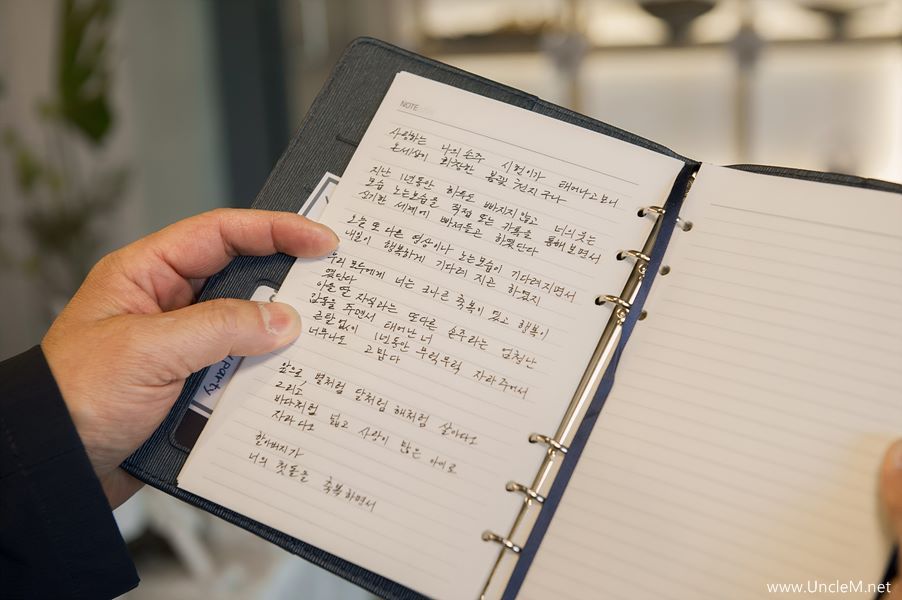 NOTE
사랑하는 나의 손주 시헌이가 태어나고보니
온세상이 화창한 봄빛 천지구나
지난 1년동안 하루도 빠지지않고 너의웃는
모습 노는모습을 직접 또는 카톡을 통해보면서
신기한 세계에 빠져들곤 하였단다
오늘 또 다른 영상이나 노는모습이 기다려지면서
내일이 행복하게 기다려 지곤 하였지
우리 모두에게 너는 크나큰 축복이 됐고 행복이
였단다
아들 딸 자식과는 또다른 손주라는 엄청난
감동을 주면서 태어난 너
큰탈없이 1년동안 무럭무럭 자라주어서
너무나도 고맙다
앞으로 별처럼 달처럼 해처럼 살아다오
그리고
바다처럼 넓고 사랑이 많은 아이로
자라다오
할아버지가
너의 첫돌을 축복하면서
party
www.UncleM.net